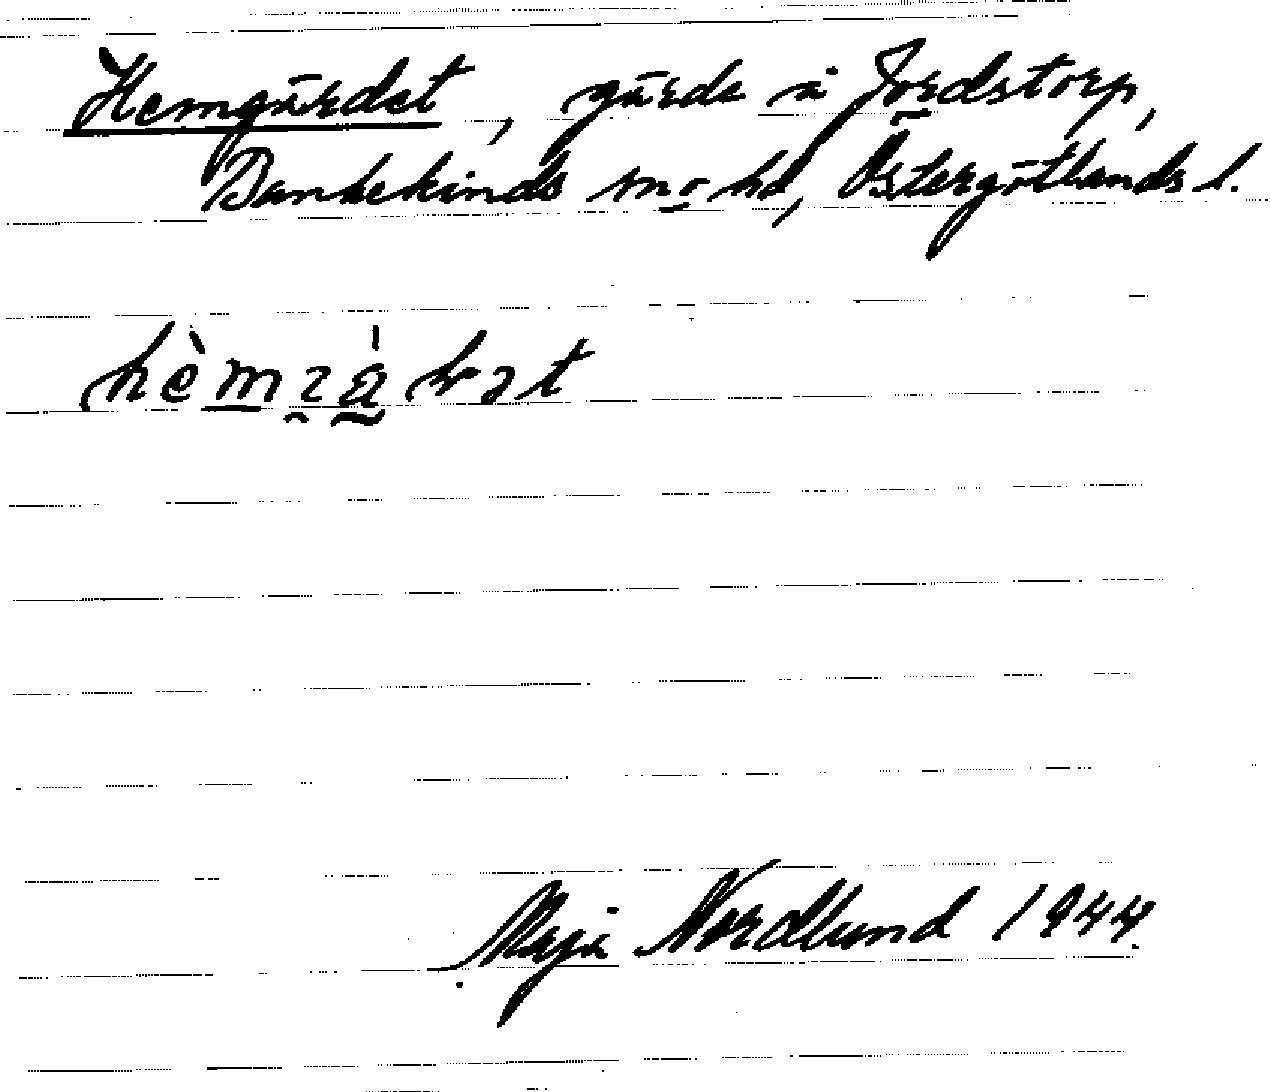 Hemgärdet, gärde å Jordstorp,
Bankekinds sn o hd, Östergötlands l.
Maja Nordlund 1944.